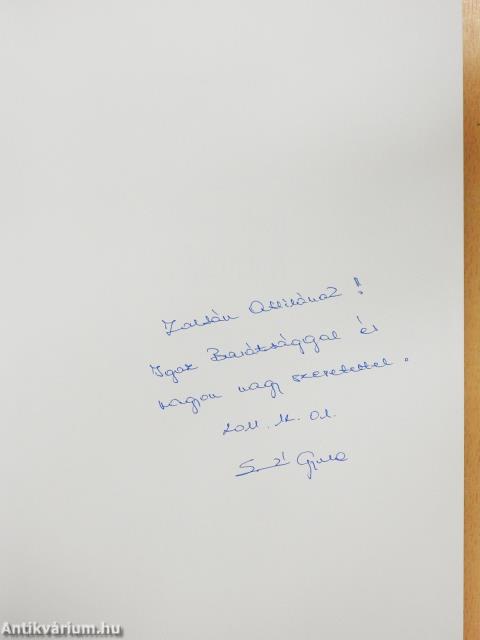 Zoltán Attilának!
Igaz Barátsággal és
nagyon nagy szeretettel.
2011. 12. 01.
Gyula
Antikvárium.hu